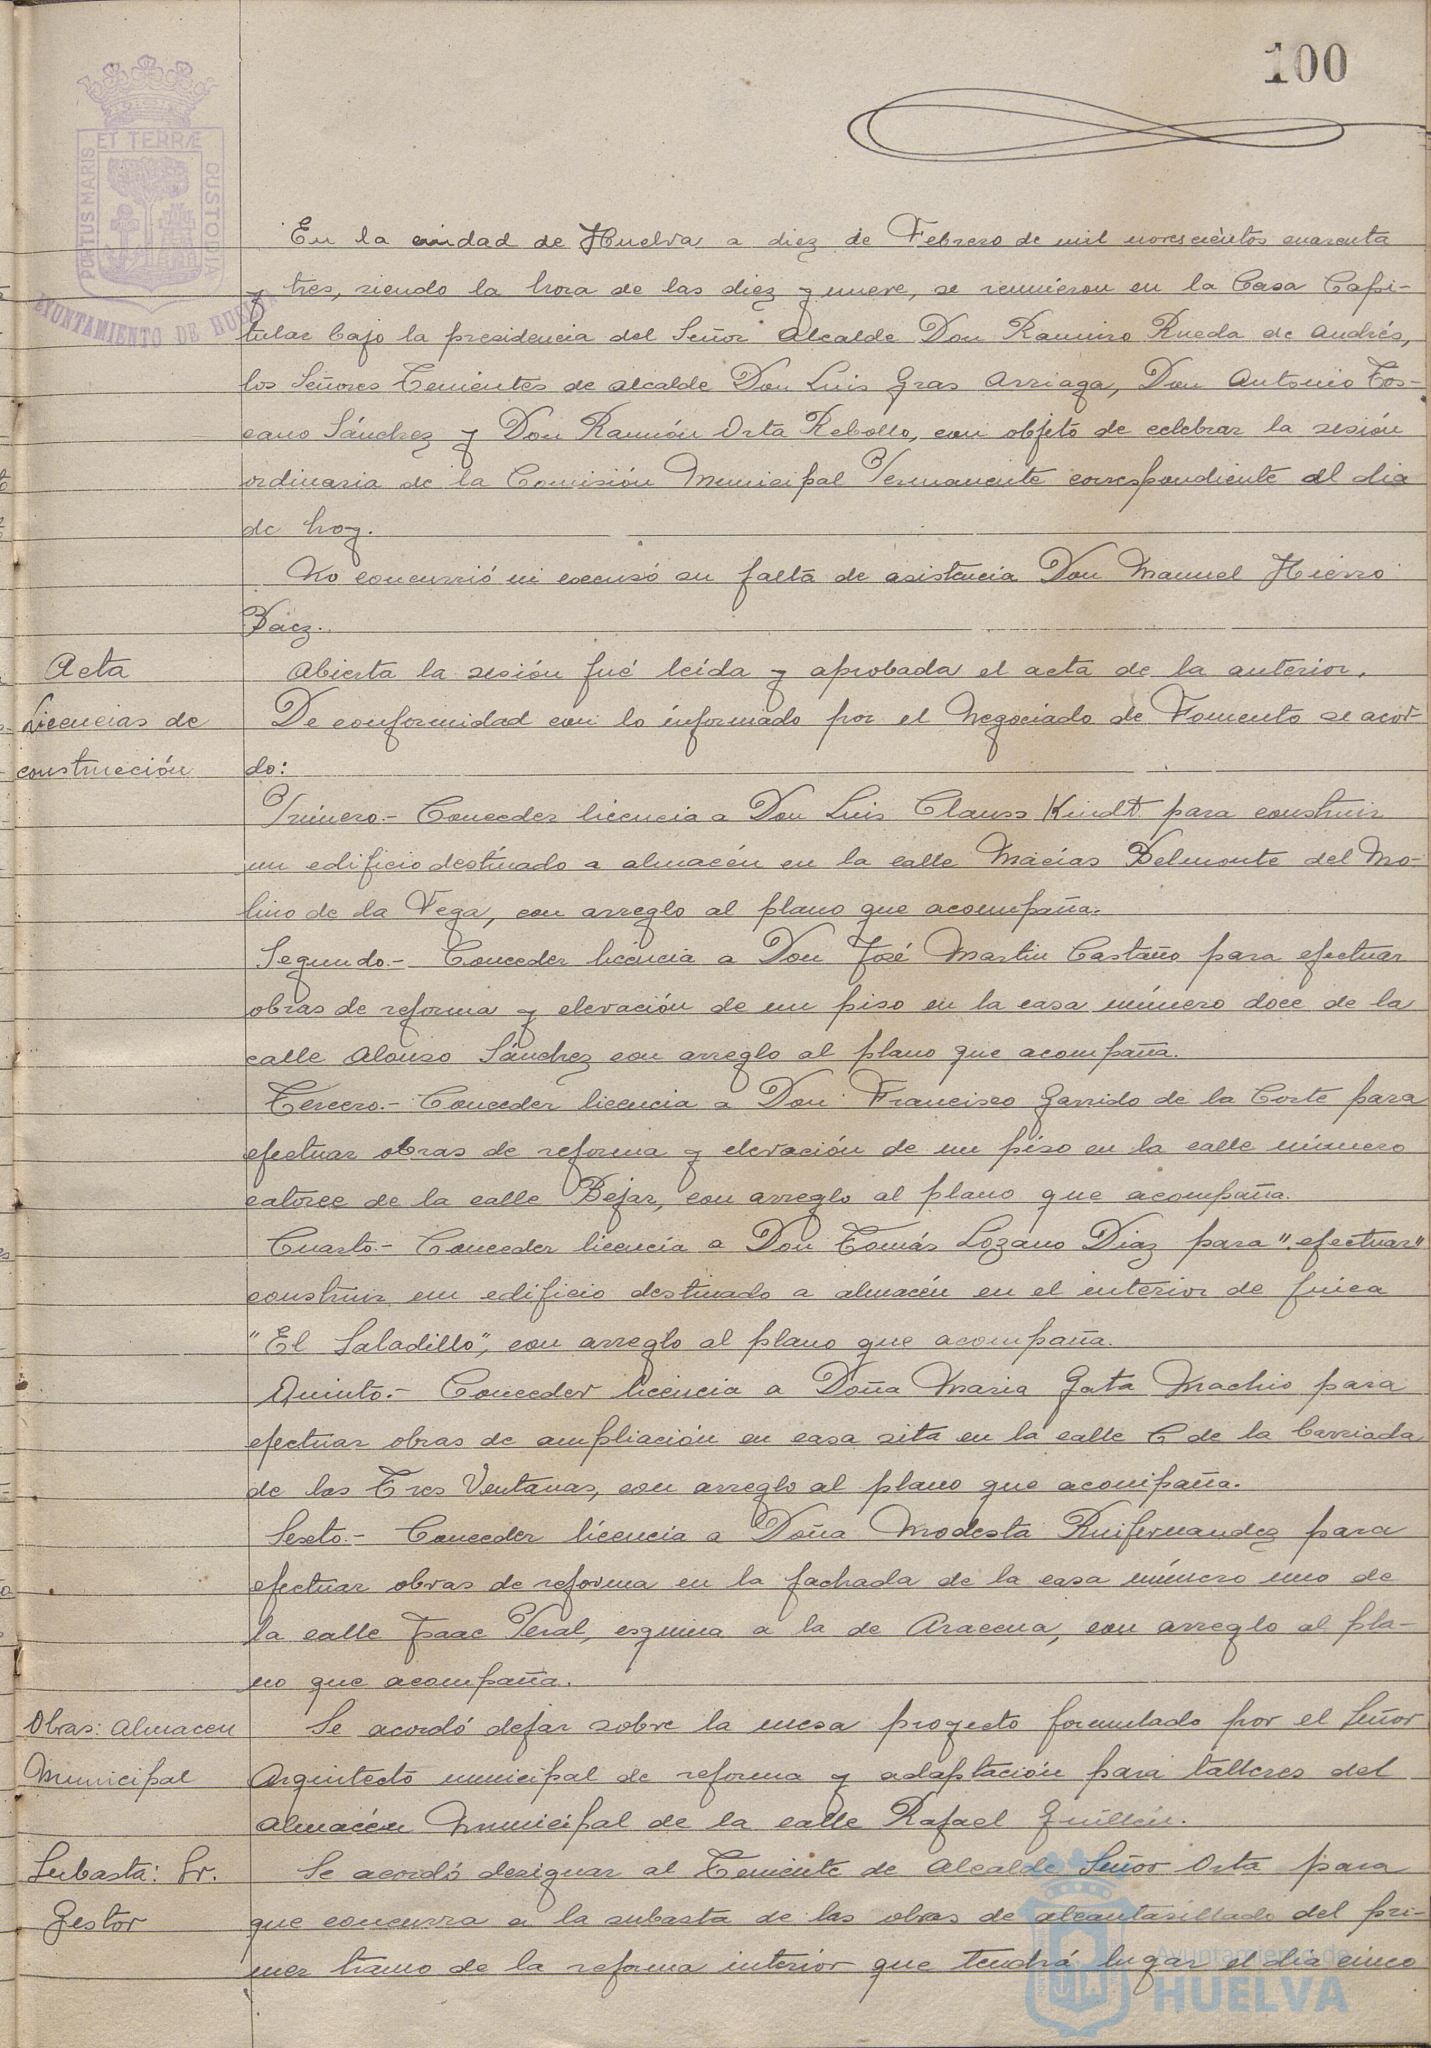 100
ET TERRÆ
PORTUS MARIS
CUSTODIA
AYUNTAMIENTO DE HUELVA
En la ciudad de Huelva a diez de Febrero de mil novescientos cuarenta
y tres, siendo la hora de las diez y nueve, se reunieron en la Casa Capi-
tular bajo la presidencia del Señor Alcalde Don Ramiro Rueda de Andrés,
los Señores Tenientes de alcalde Don Luis Gras Arriaga, Don Antonio Tos-
cano Sánchez y Don Ramón Orta Rebollo, con objeto de celebrar la sesión
ordinaria de la Comisión Municipal Permanente correspondiente al dia
de hoy.
No concurrió ni excusó su falta de asistencia Don Manuel Hierro
Baez.
Acta
Abierta la sesión fué leída y aprobada el acta de la anterior.
Licencias de
De conformidad con lo informado por el Negociado de Fomento se acor-
construcción
do:
Primero.- Conceder licencia a Don Luis Clauss Kindt para construir
un edificio destinado a almacén en la calle Macías Belmonte del Mo-
lino de la Vega, con arreglo al plano que acompaña.
Segundo.- Conceder licencia a Don José Martin Castaño para efectuar
obras de reforma y elevación de un piso en la casa número doce de la
calle Alonso Sánchez con arreglo al plano que acompaña.
Tercero.- Conceder licencia a Don Francisco Garrido de la Corte para
efectuar obras de reforma y elevación de un piso en la calle número
catorce de la calle Bejar, con arreglo al plano que acompaña.
Cuarto.- Conceder licencia a Don Tomás Lozano Diaz para "efectuar"
construir un edificio destinado a almacén en el interior de finca
"El Saladillo", con arreglo al plano que acompaña.
Quinto.- Conceder licencia a Doña Maria Gata Machio para
efectuar obras de ampliación en casa sita en la calle C de la barriada
de las Tres Ventanas, con arreglo al plano que acompaña.
Sexto.- Conceder licencia a Doña Modesta Ruifernandez para
efectuar obras de reforma en la fachada de la casa número uno de
la calle Isaac Peral, esquina a la de Aracena, con arreglo al pla-
no que acompaña.
Obras: Almacen
Se acordó dejar sobre la mesa proyecto formulado por el Señor
Municipal
Arquitecto municipal de reforma y adaptación para talleres del
Almacén Municipal de la calle Rafael Guillén.
Subasta: Sr.
Se acordó designar al Teniente de Alcalde Señor Orta para
Gestor
que concurra a la subasta de las obras de alcantarillado del pri-
mer tramo de la reforma interior que tendrá lugar el dia cinco
Ayuntamiento de
HUELVA